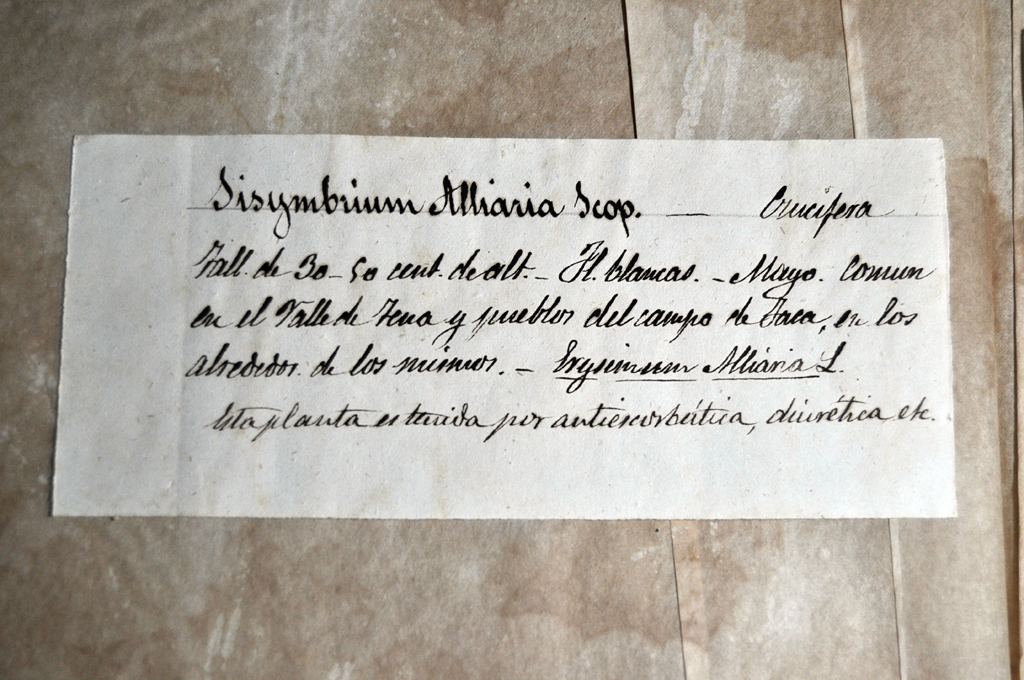 Sisymbrium Alliaria Scop. — Crucifera
Tall. de 30-50 cent. de alt. - Fl. blancas. - Mayo. Comun
en el Valle de Tena y pueblos del campo de Jaca, en los
alrededor. de los mismos. - Erysimum Alliária L.
Esta planta es tenida por antiescorbútica, diurética etc.